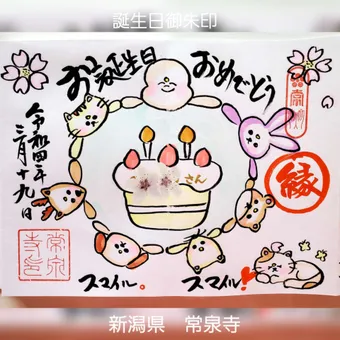 誕生日御朱印
お誕生日
おめでとう
令和四年
三月十九日
さん
縁
常泉
寺印
スマイル。
スマイル!
新潟県 常泉寺